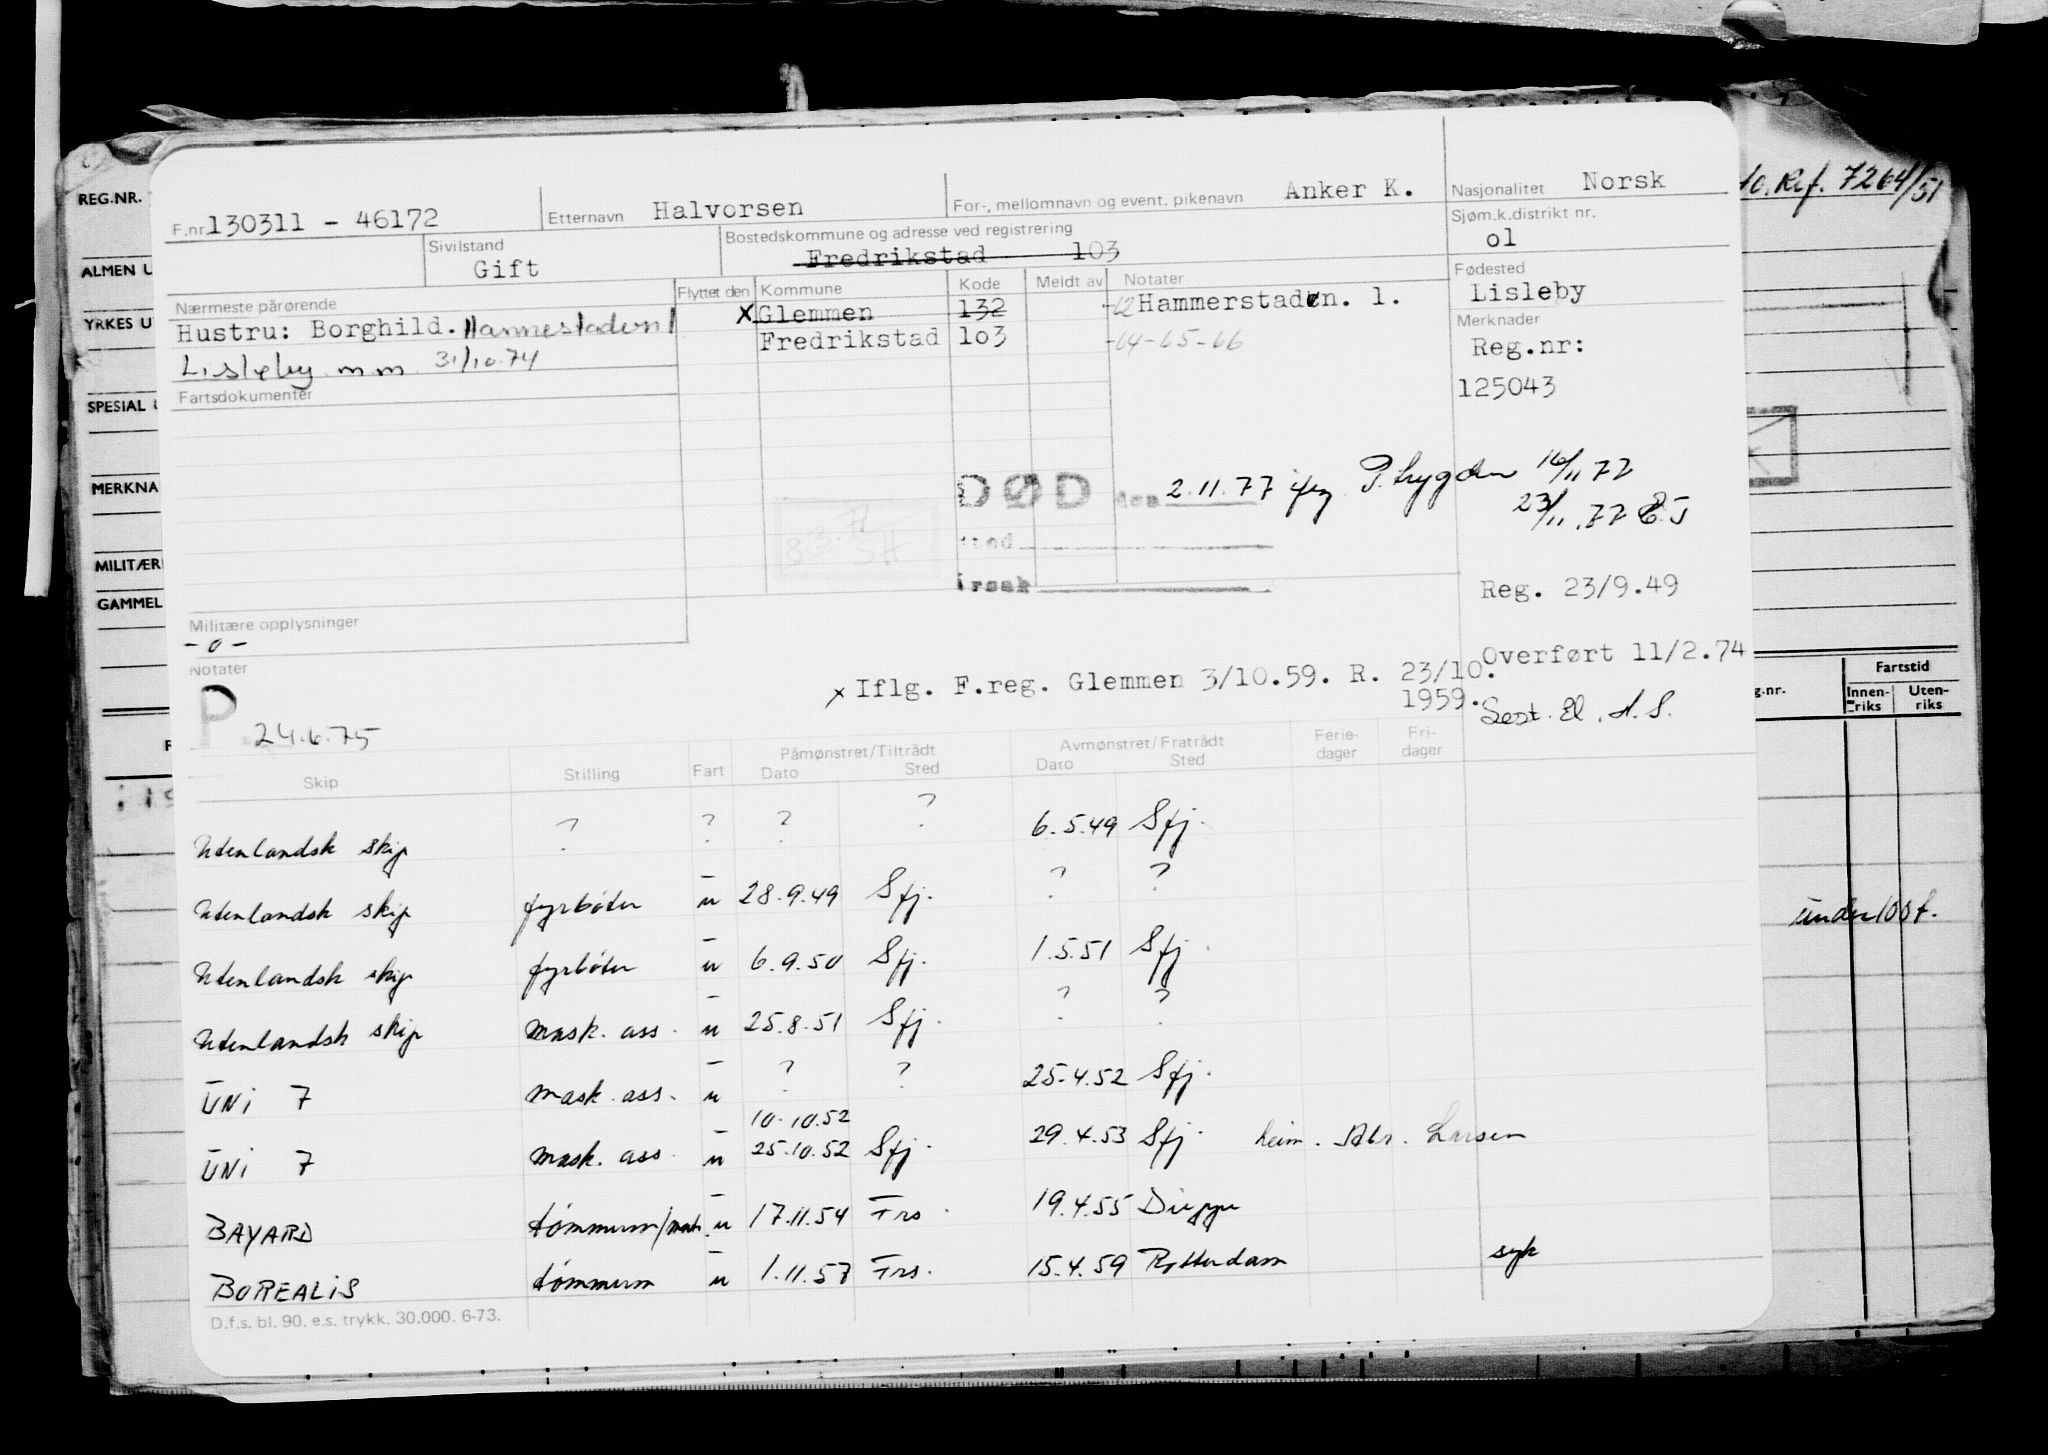 10. Ref. 7264/51
REG.NR.
F.nr. 130311 - 46172 Etternavn Halvorsen For-, mellomnavn og event. pikenavn Anker K. Nasjonalitet Norsk
Sjøm.k.distrikt nr.
01
ALMEN U
Sivilstand
Gift
Bostedskommune og adresse ved registrering
Fredrikstad 103
Fødested
Lisleby
Nærmeste pårørende
Hustru: Borghild. Hannestadern 1
Lisleby m m 31/10.74
Flyttet den Kommune Kode Meldt av Notater
X Glemmen 132 -62 Hammerstaden. 1.
Fredrikstad 103 -64-65-66
YRKES U
Merknader
Reg.nr:
125043
Fartsdokumenter
SPESIAL
MERKNA
DØD den 2.11.77 iflg P.trygden 16/11 77
23/11.77 E.J
8.3.77
SH
sted
årsak
MILITÆR
GAMMEL
Reg. 23/9.49
Militære opplysninger
- 0 -
Overført 11/2.74
Notater
x Iflg. F.reg. Glemmen 3/10.59. R. 23/10.
1959.
Sest. El. A. S.
P. 24.6.75
g.nr. Fartstid
Innen-riks Uten-riks
Påmønstret/Tiltrådt Avmønstret/Fratrådt Ferie-dager Fri-dager
Skip Stilling Fart Dato Sted Dato Sted
Utenlandsk skip ? ? ? ? 6.5.49 Sfj.
Utenlandsk skip fyrbøter u 28.9.49 Sfj. ? ?
under 100 t.
Utenlandsk skip fyrbøter u 6.9.50 Sfj. 1.5.51 Sfj.
Utenlandsk skip mask. ass. u 25.8.51 Sfj. ? ?
UNI 7 mask. ass. u ? ? 25.4.52 Sfj.
10.10.52
UNI 7 mask. ass. u 25.10.52 Sfj. 29.4.53 Sfj. heim. Abr. Larsen
BAYARD tømmerm/matr. u 17.11.54 Frs. 19.4.55 Dieppe
BOREALIS tømmerm u 1.11.57 Frs. 15.4.59 Rotterdam syk
D.f.s. bl. 90. e.s. trykk. 30.000. 6-73.